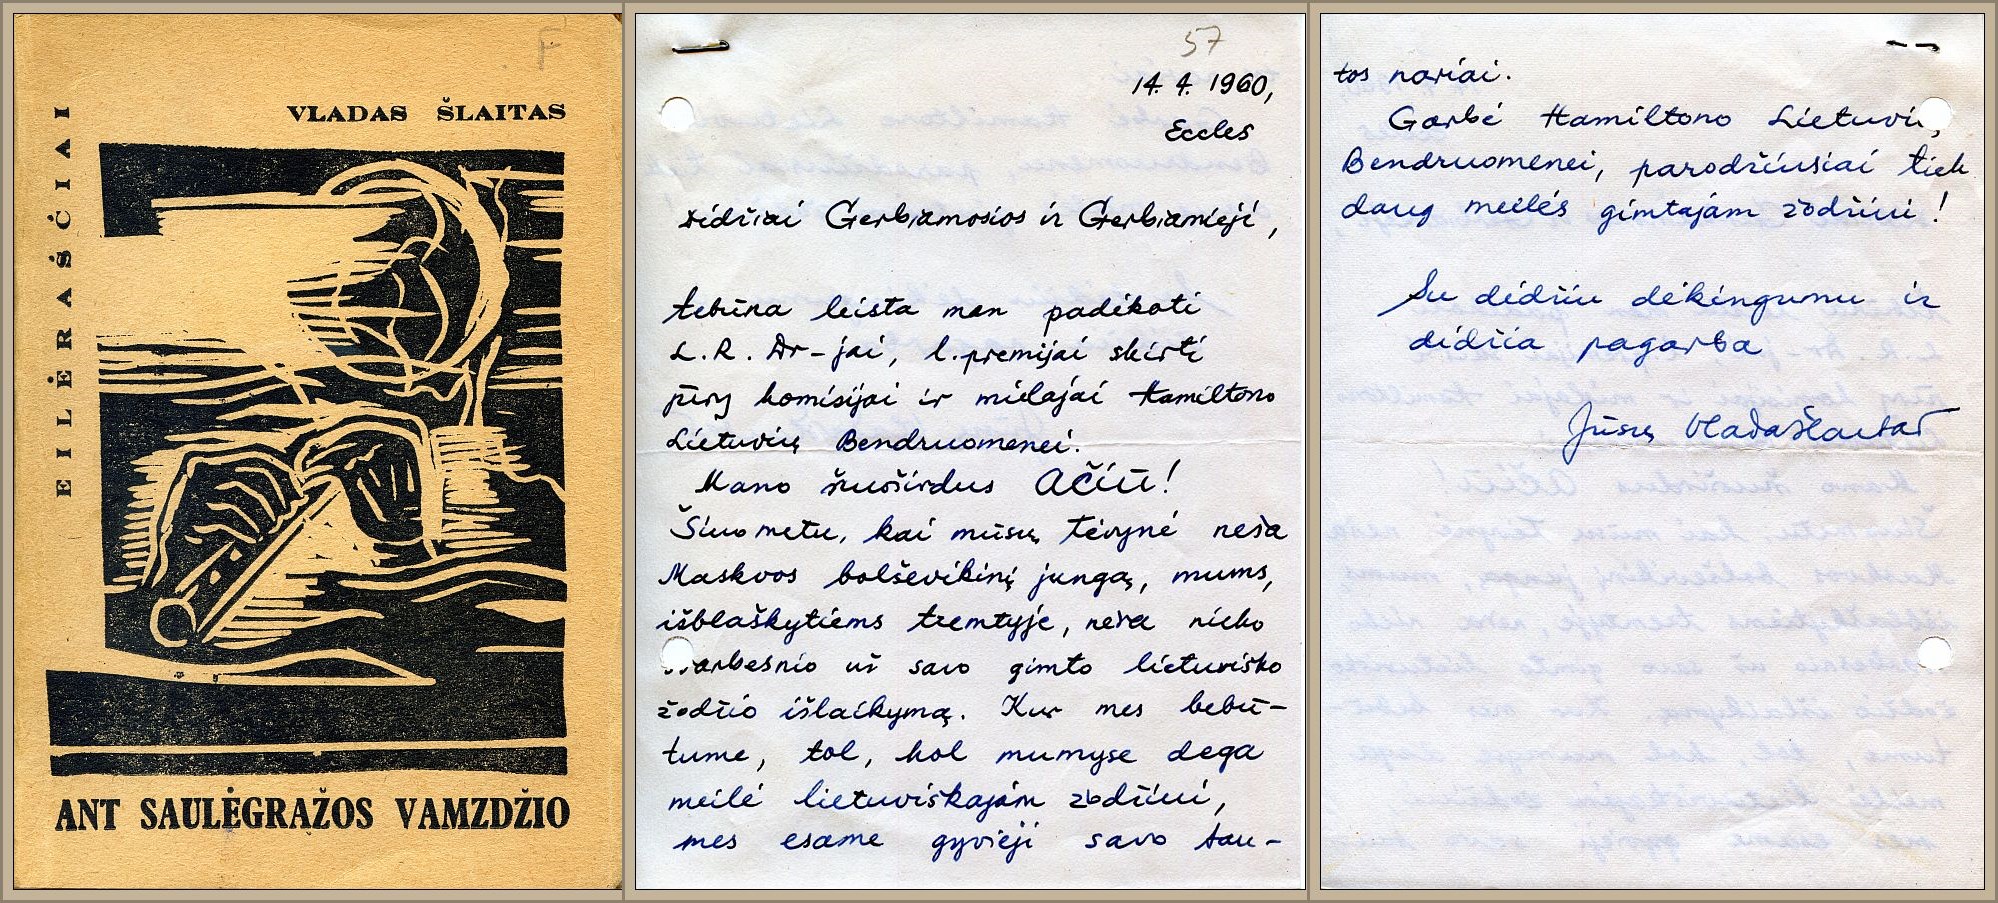 VLADAS ŠLAITAS
EILĖRAŠČIAI
ANT SAULĖGRAŽOS VAMZDŽIO
57
14. 4. 1960,
Eccles
Didžiai Gerbiamosios ir Gerbiamieji,
tebūna leista man padėkoti
L. R. Dr-jai, l. premijai skirti
jūrų komisijai ir mielajai Hamiltono
Lietuvių Bendruomenei.
Mano nuoširdus AČIŪ!
Šiuo metu, kai mūsų tėvynė neša
Maskvos bolševikinį jungą, mums,
išblaškytiems tremtyje, nėra nieko
svarbesnio už savo gimto lietuviško
žodžio išlaikymą. Kur mes bebū-
tume, tol, kol mumyse dega
meilė lietuviškajam žodžiui,
mes esame gyvieji savo tau-
tos nariai.
Garbė Hamiltono Lietuvių
Bendruomenei, parodžiusiai tiek
daug meilės gimtajam žodžiui!
Su didžiu dėkingumu ir
didžia pagarba
Jūsų Vladas Šlaitas